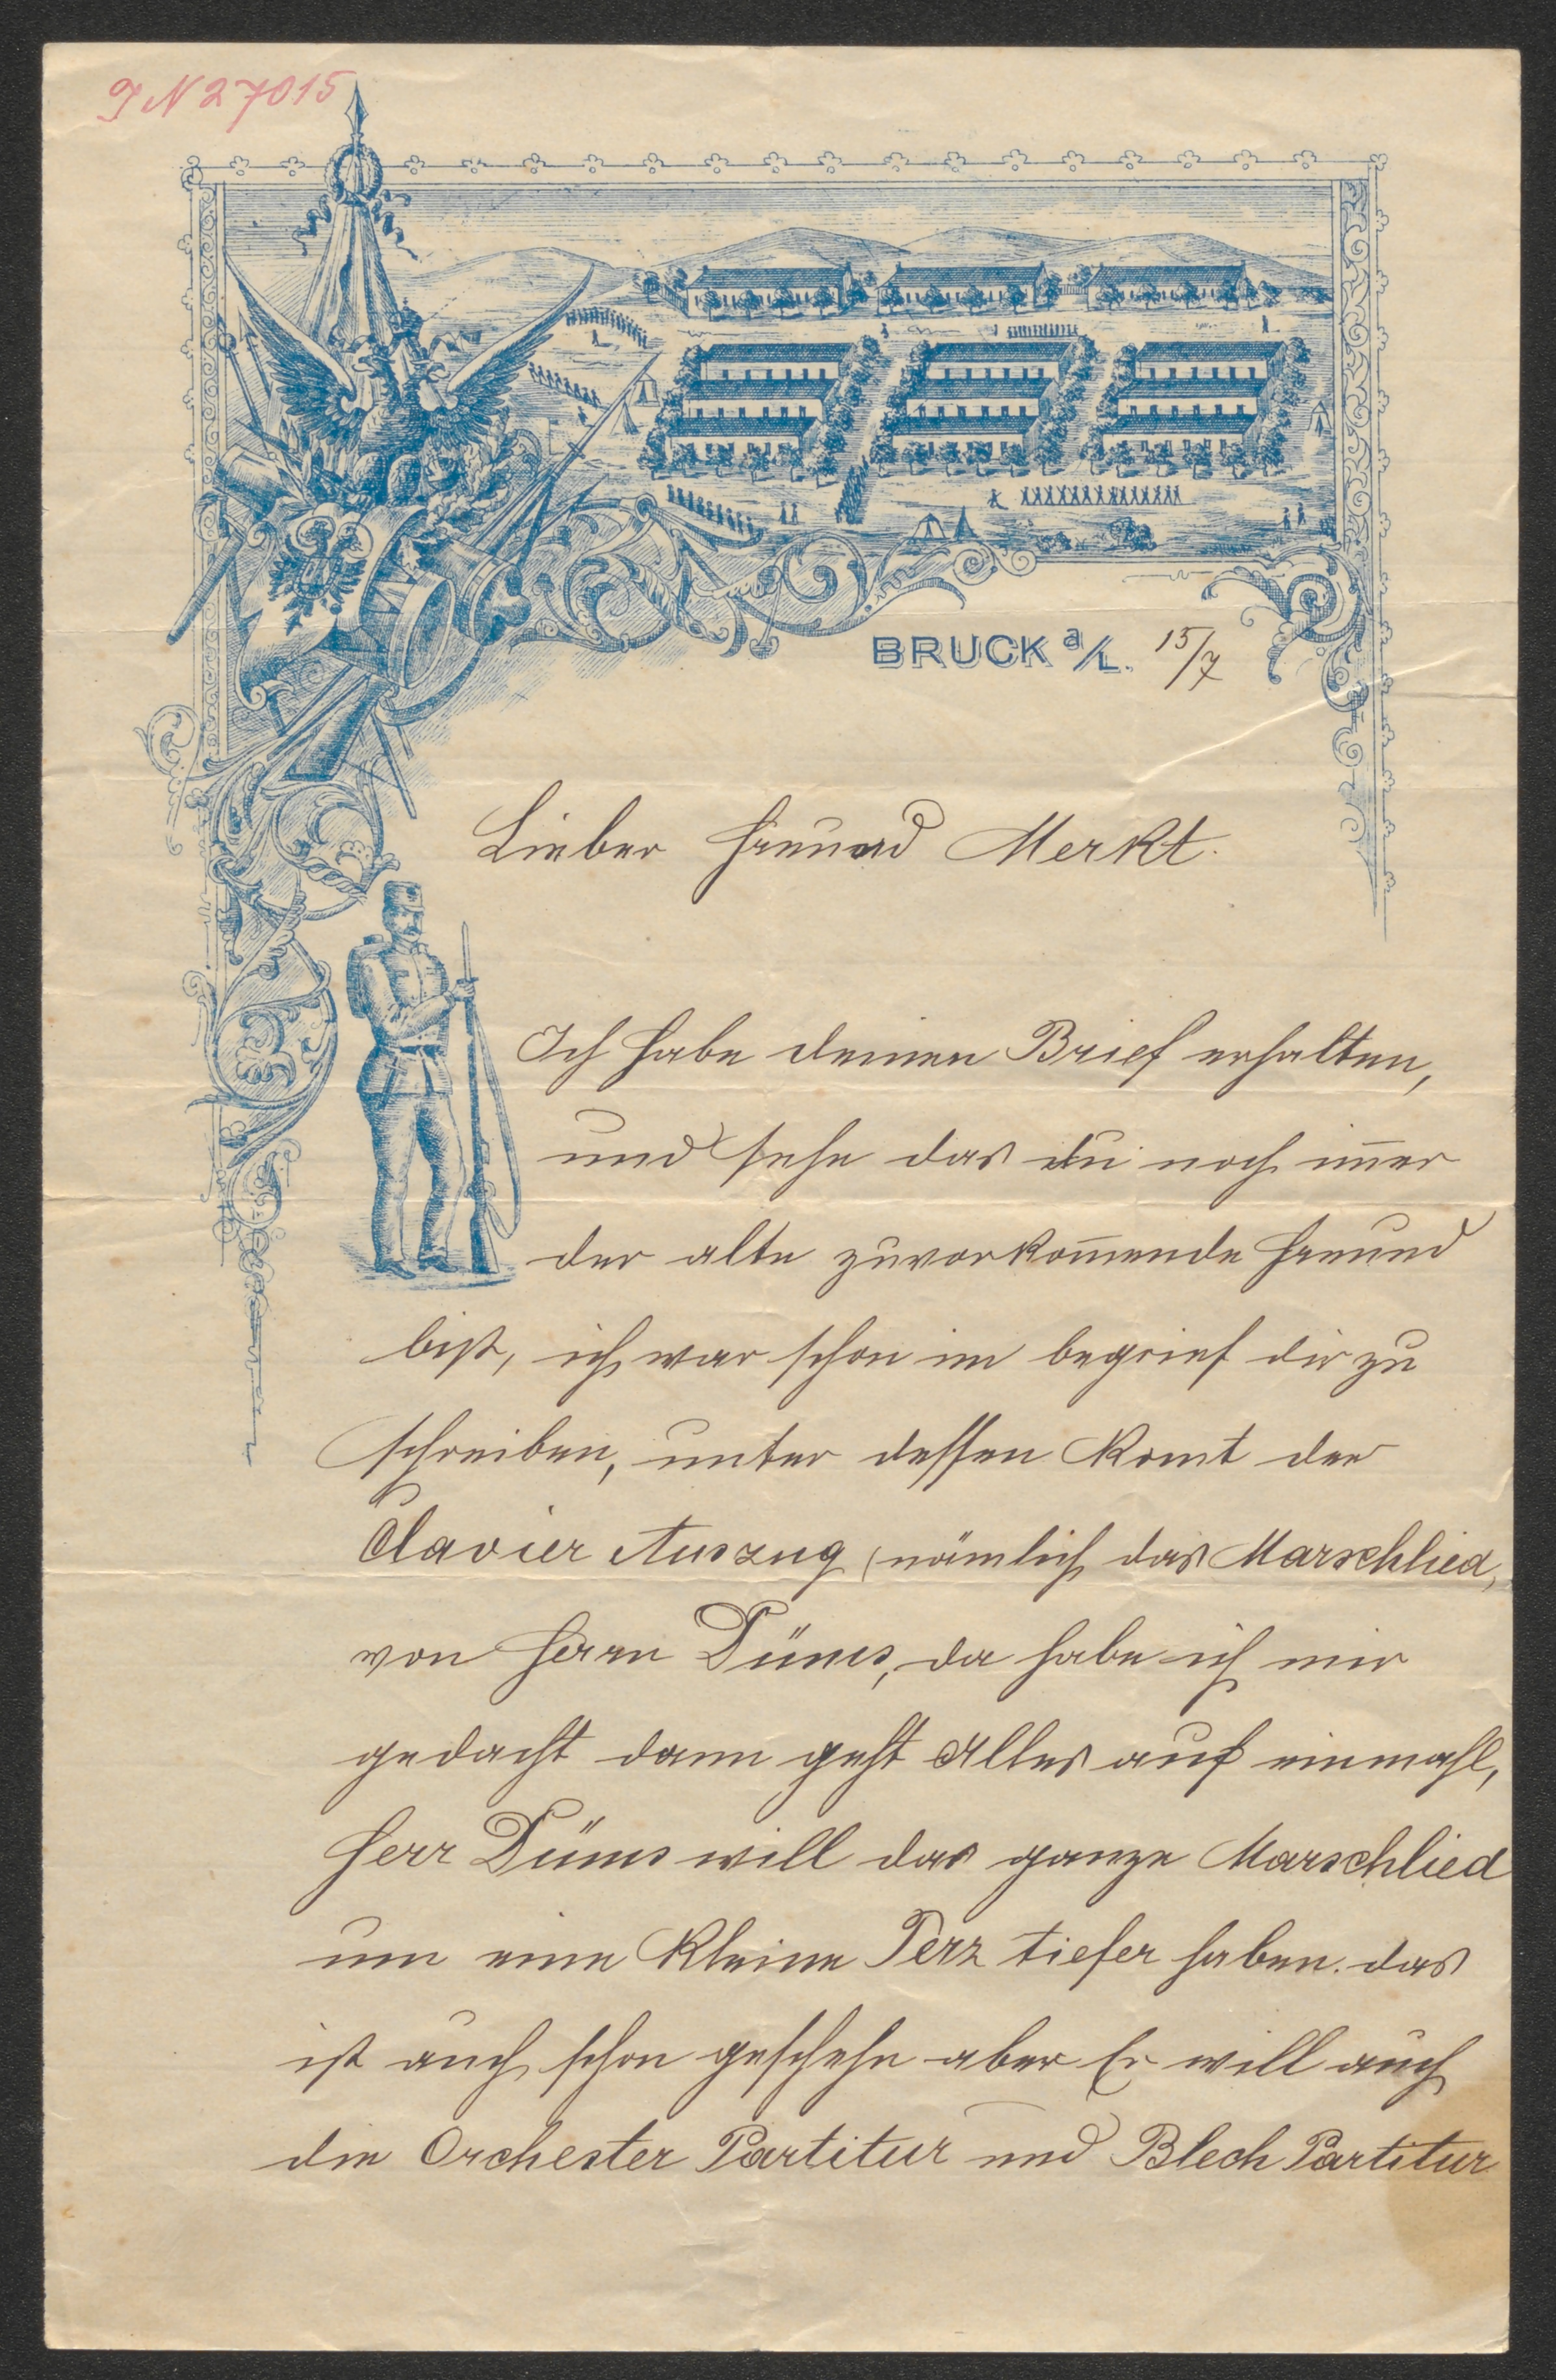 IN 27015
BRUCK a/L. 15/7
Lieber Freund Merkt.
Ich habe deinen Brief erhalten,
und sehe das du noch im̅er
der alte zuvorkom̅ende Freund
bist, ich war schon im begrief dir zu
schreiben, unter dessen komt der
Clavier Auszug (nämlich das Marschlied,
von Herrn Düms, da habe ich mir
gedacht dann geht Alles auf einmahl,
Herr Düms will das ganze Marschlied
um eine kleine Terz tiefer haben. das
ist auch schon geschehn aber Er will auch
die Orchester Partitur und Blech Partitur